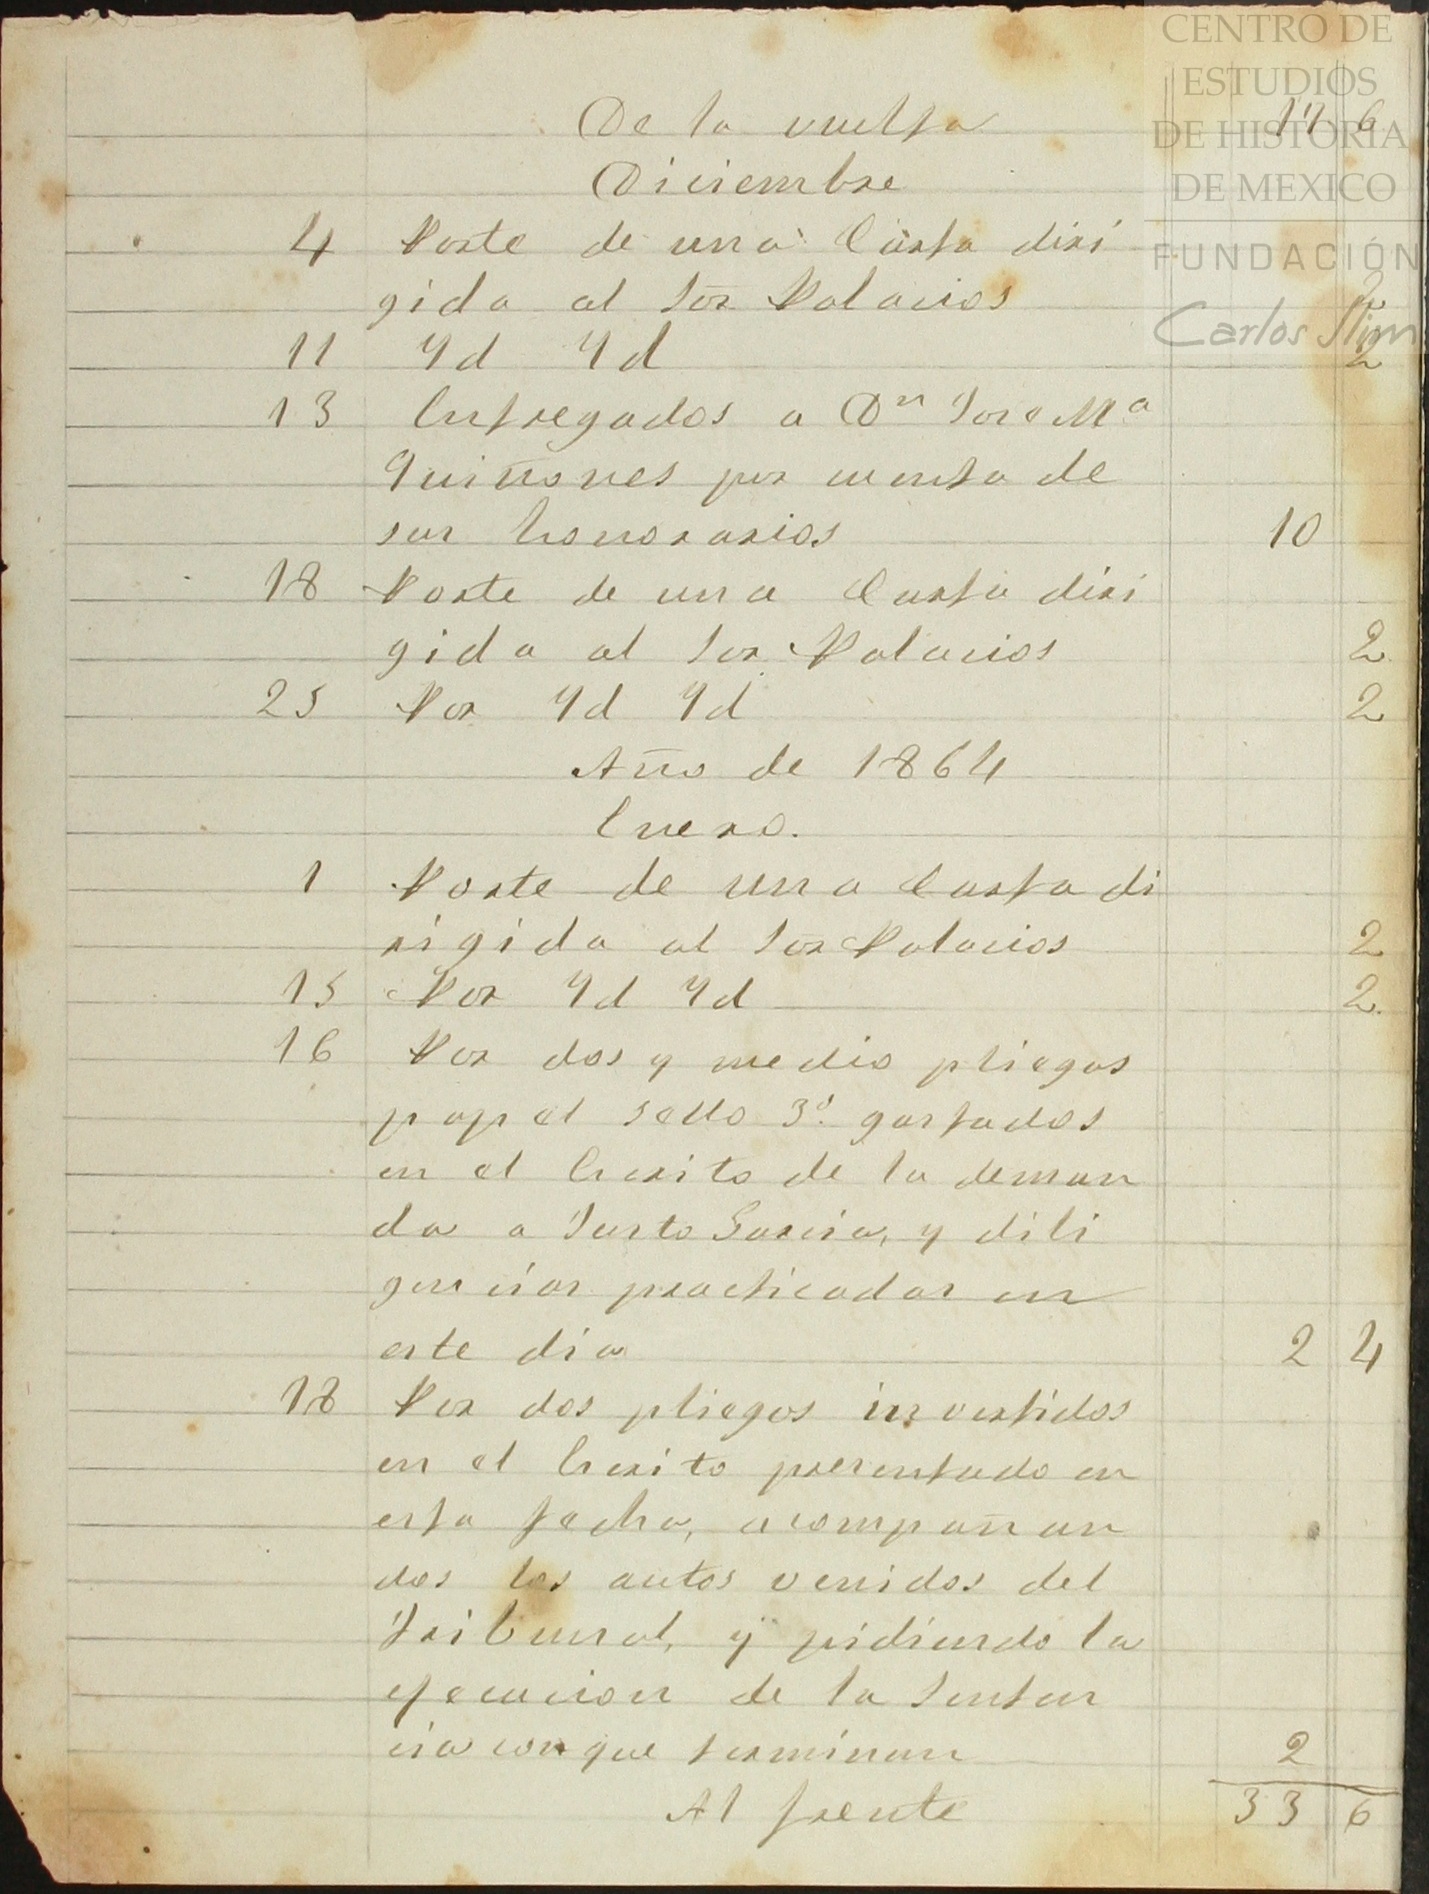 CENTRO DE
ESTUDIOS
DE HISTORIA
DE MEXICO
FUNDACIÓN
Carlos Slim
De la vuelta 17 6
Diciembre
4 Porte de una Carta diri
gida al Sor Palacios 2
11 Yd Yd 2
13 Entregados a Dn Jose Ma
Quiñones por cuenta de
sus honorarios 10
18 Porte de una Carta diri
gida al Sor Palacios 2
25 Por Yd Yd 2
Año de 1864
Enero.
1 Porte de una Carta di
rigida al Sor Palacios 2
15 Por Yd Yd 2
16 Por dos y medio pliegos
papel sello 3o. gastados
en el Escrito de la deman
da a Justo Garcia, y dili
gencias practicadas en
este dia 2 4
18 Por dos pliegos invertidos
en el Escrito presentado en
esta fecha, acompañan
dos los autos venidos del
Tribunal, y pidiendo la
ejecucion de la Senten
cia con que terminan 2
Al frente 33 6